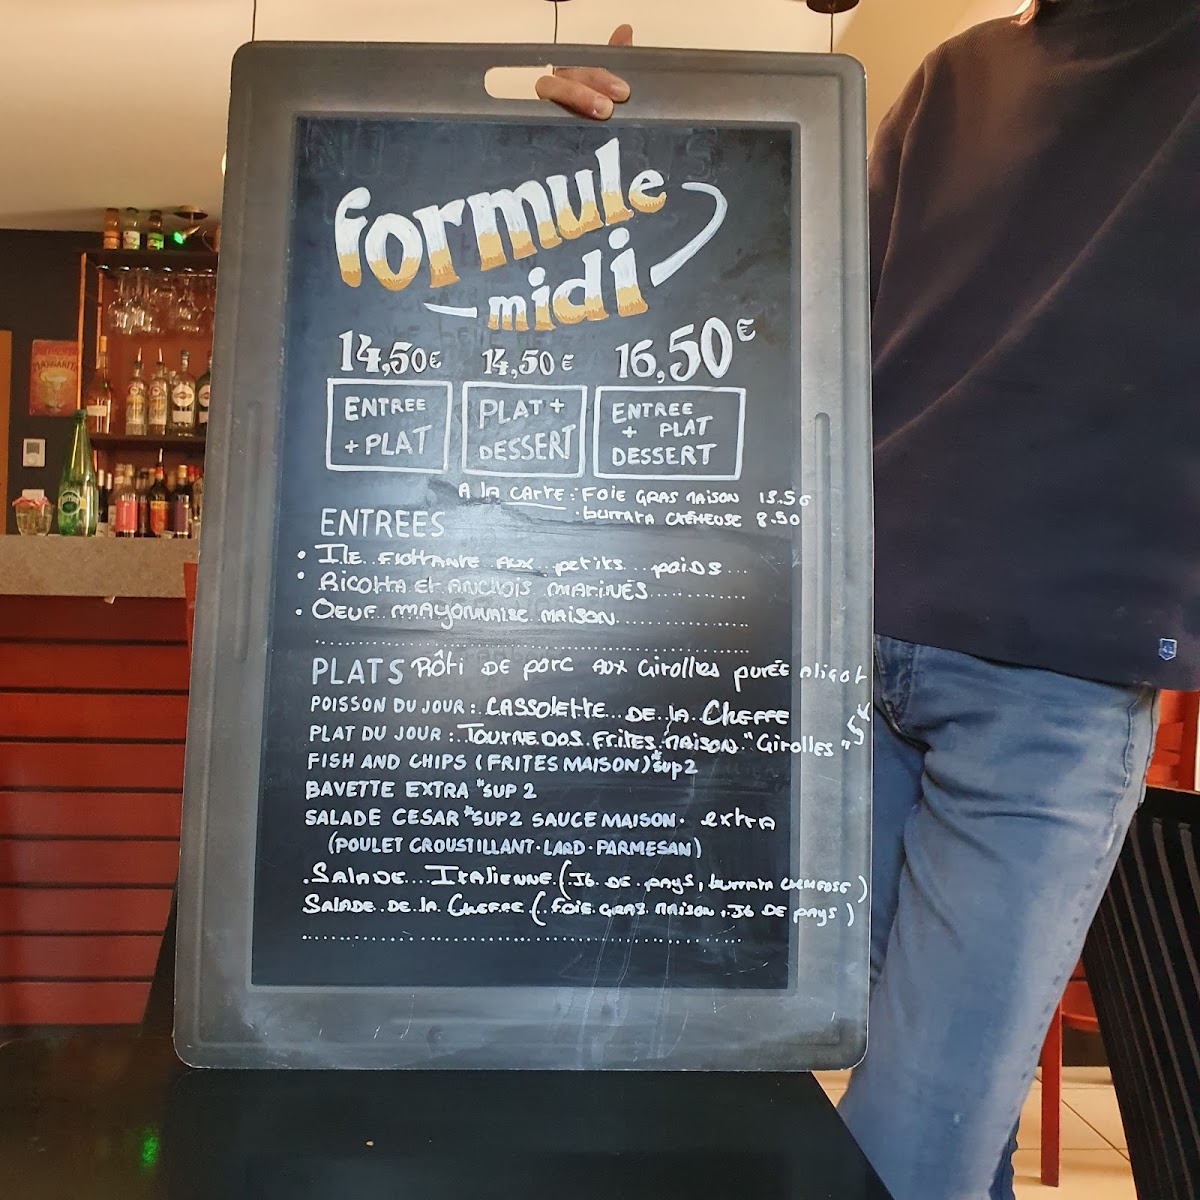 formule
midi
14,50€ 14,50€ 16,50€
ENTREE + PLAT
PLAT + DESSERT
ENTREE + PLAT DESSERT
A la CARTE : FOIE GRAS MAISON 13.50
. burrata CRÉMEUSE 8.50
ENTREES
• ILE FlOTTANTE AUX petits poids
• RICOTTA ET ANCHOIS MARINÉS
• OEUF MAYONNAISE MAISON
PLATS RÔti DE porc AUX Girolles purée Aligot
POISSON DU JOUR : CASSOLETTE DE lA CHEFFE
PLAT DU JOUR : TOURNEDOS FRITES MAISON "Girolles" 5€
FISH AND CHIPS (FRITES MAISON) *sup2
BAVETTE EXTRA *SUP 2
SALADE CESAR *SUP2 SAUCE MAISON. extra
(POULET CROUSTILLANT. LARD. PARMESAN)
. SALADE ITALIENNE (J6 DE pays, burrata CREMEUSE)
SALADE DE lA CHEFFE (FOIE GRAS MAISON, J6 DE pays)